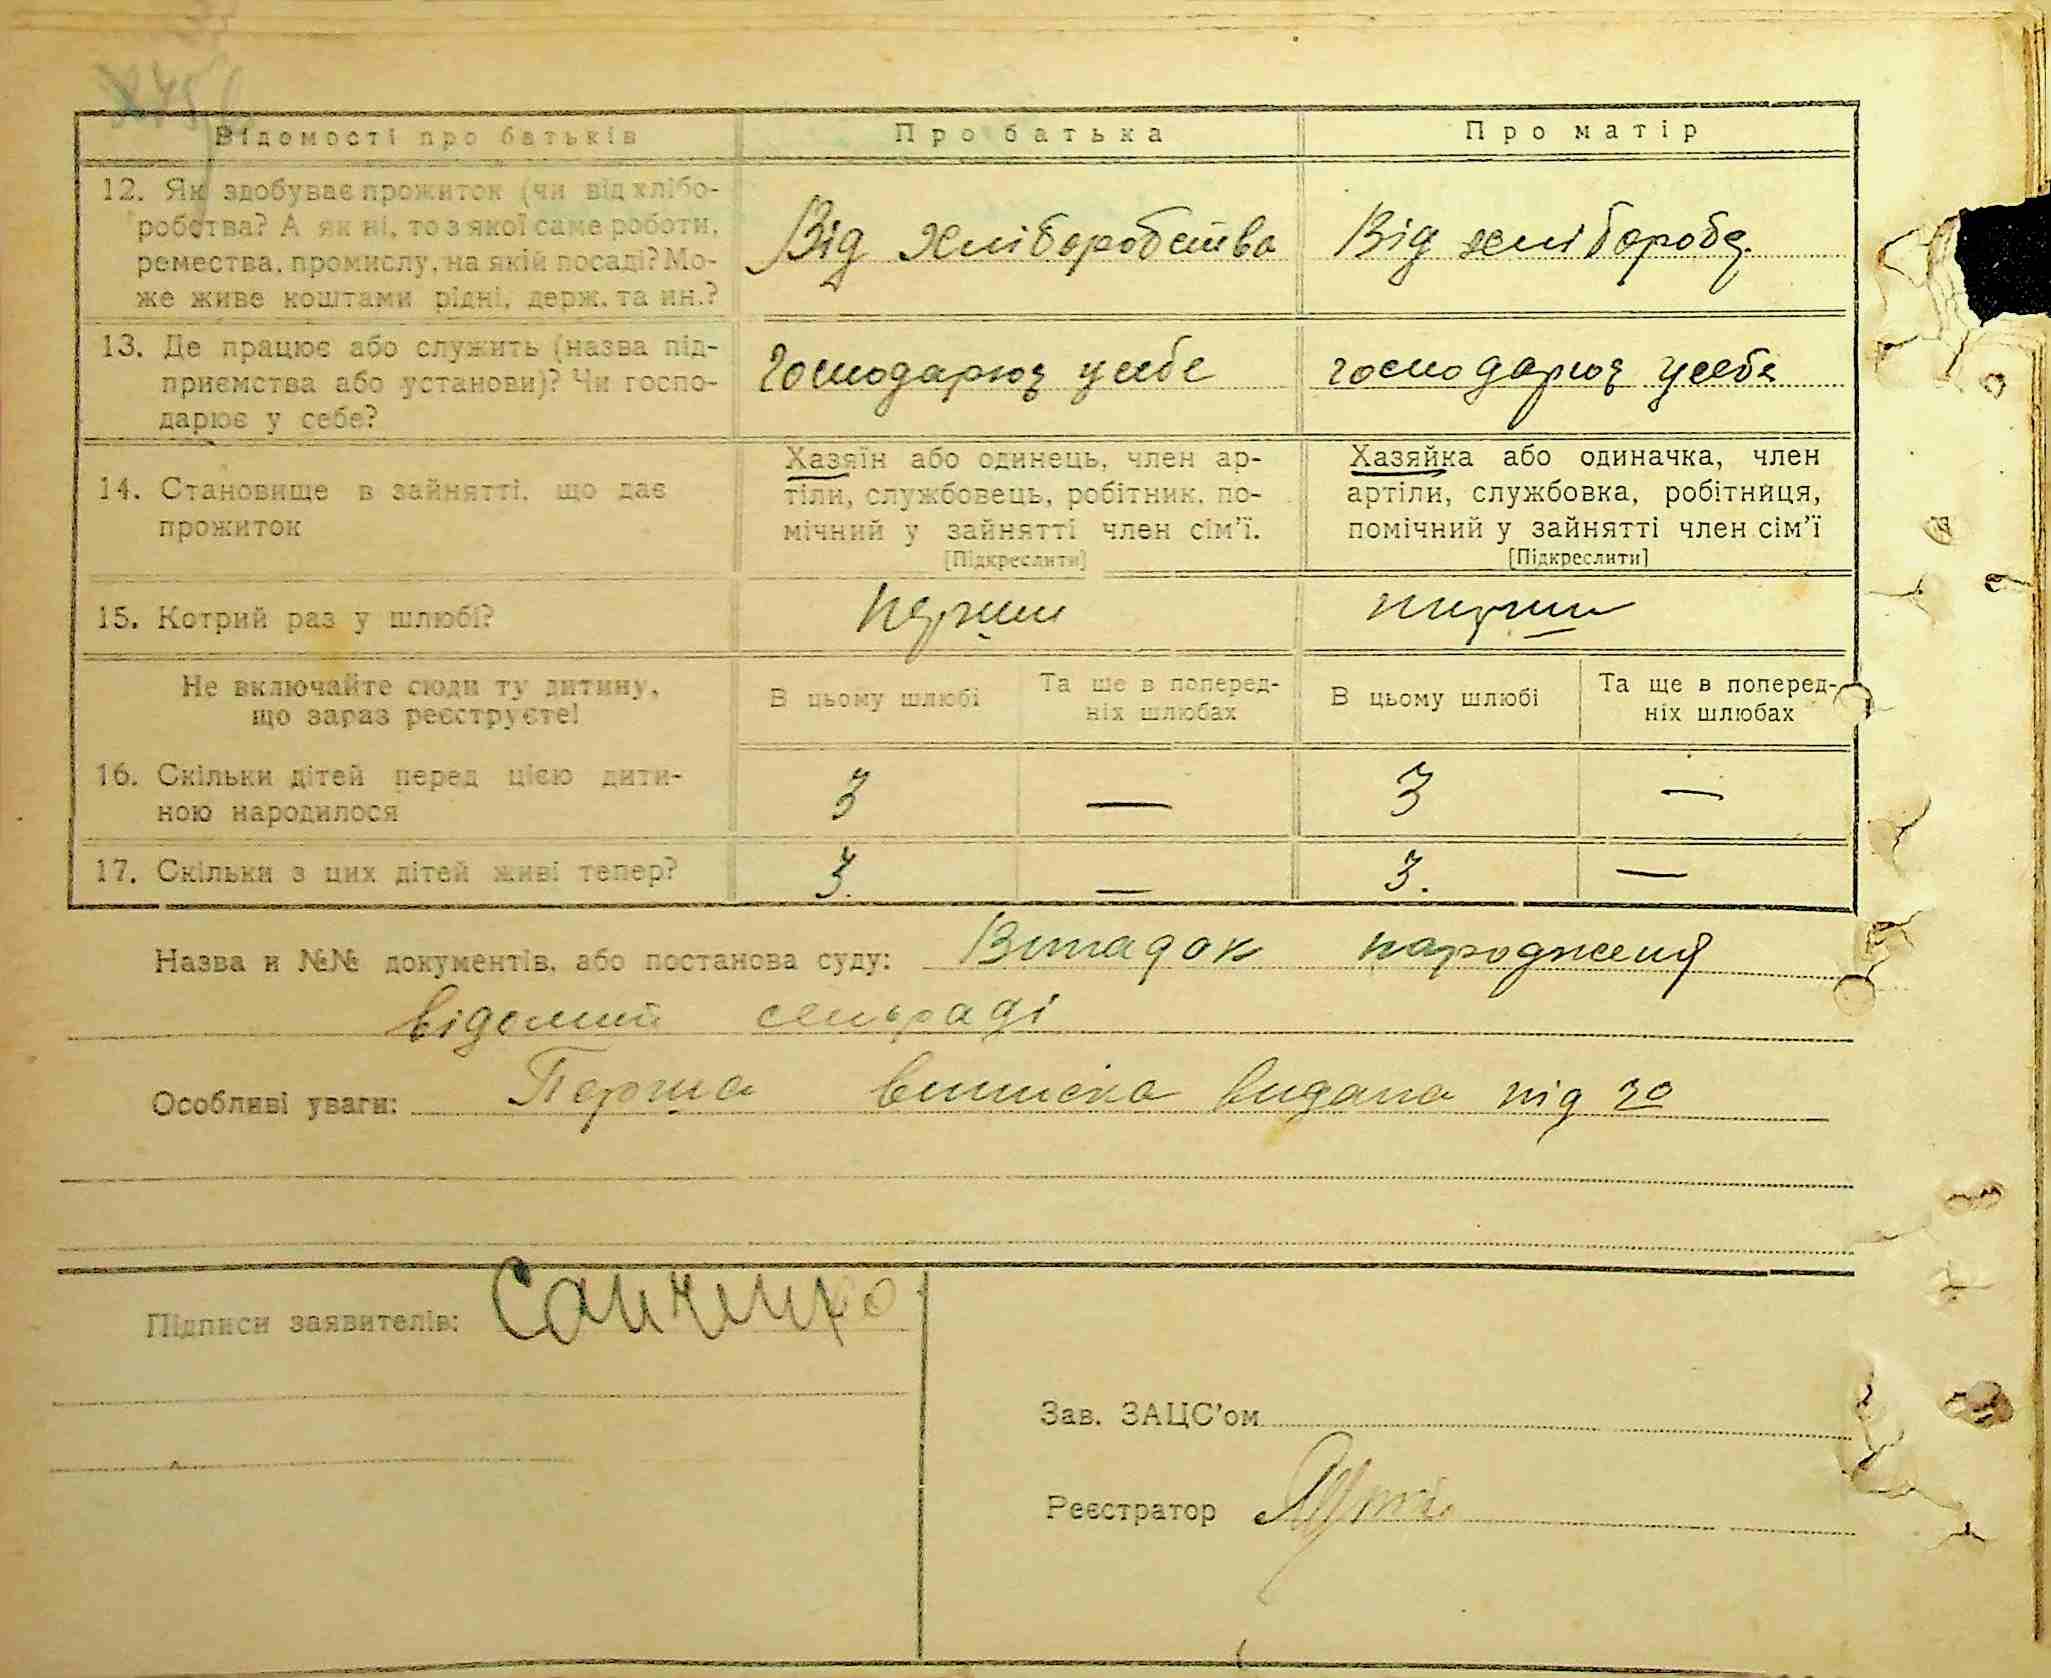 Відомості про батьків Про батька Про матір
12. Як здобуває прожиток (чи від хлібо-
робства? А як ні, то з якої саме роботи,
ремества, промислу, на якій посаді? Мо-
же живе коштами рідні, держ. та ин.?
Від хліборобства Від хлібороб.
13. Де працює або служить (назва під-
приємства або установи)? Чи госпо-
дарює у себе?
Господарює у себе господарює у себе
14. Становище в зайнятті, що дає
прожиток
Хазяїн або одинець, член ар-
тіли, службовець, робітник, по-
мічний у зайнятті член сім'ї.
[Підкреслити]
Хазяйка або одиначка, член
артіли, службовка, робітниця,
помічний у зайнятті член сім'ї
[Підкреслити]
15. Котрий раз у шлюбі? перший перший
Не включайте сюди ту дитину,
що зараз реєструєте!
В цьому шлюбі Та ще в поперед-
ніх шлюбах
В цьому шлюбі Та ще в поперед-
ніх шлюбах
16. Скільки дітей перед цією дити-
ною народилося
3 — 3 —
17. Скільки з цих дітей живі тепер? 3. — 3. —
Назва и №№ документів, або постанова суду: Випадок народженя
відомий сельраді
Особливі уваги: Перша виписка видана під
Підписи заявителів: Санченко
Зав. ЗАЦС'ом
Реєстратор